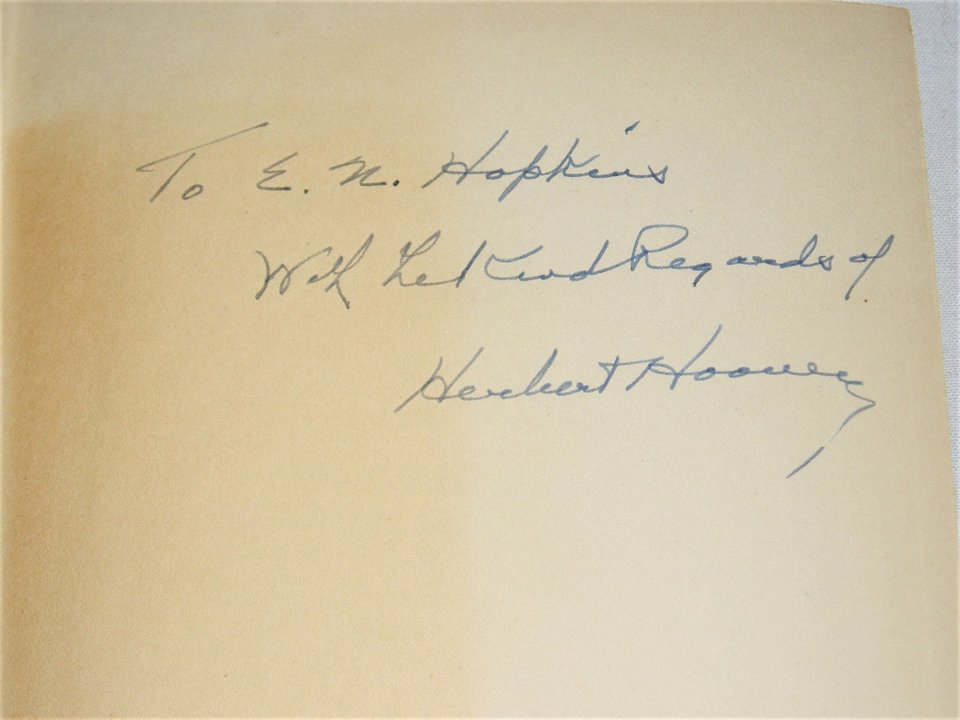 To E. N. Hopkins
With the Kind Regards of
Herbert Hoover